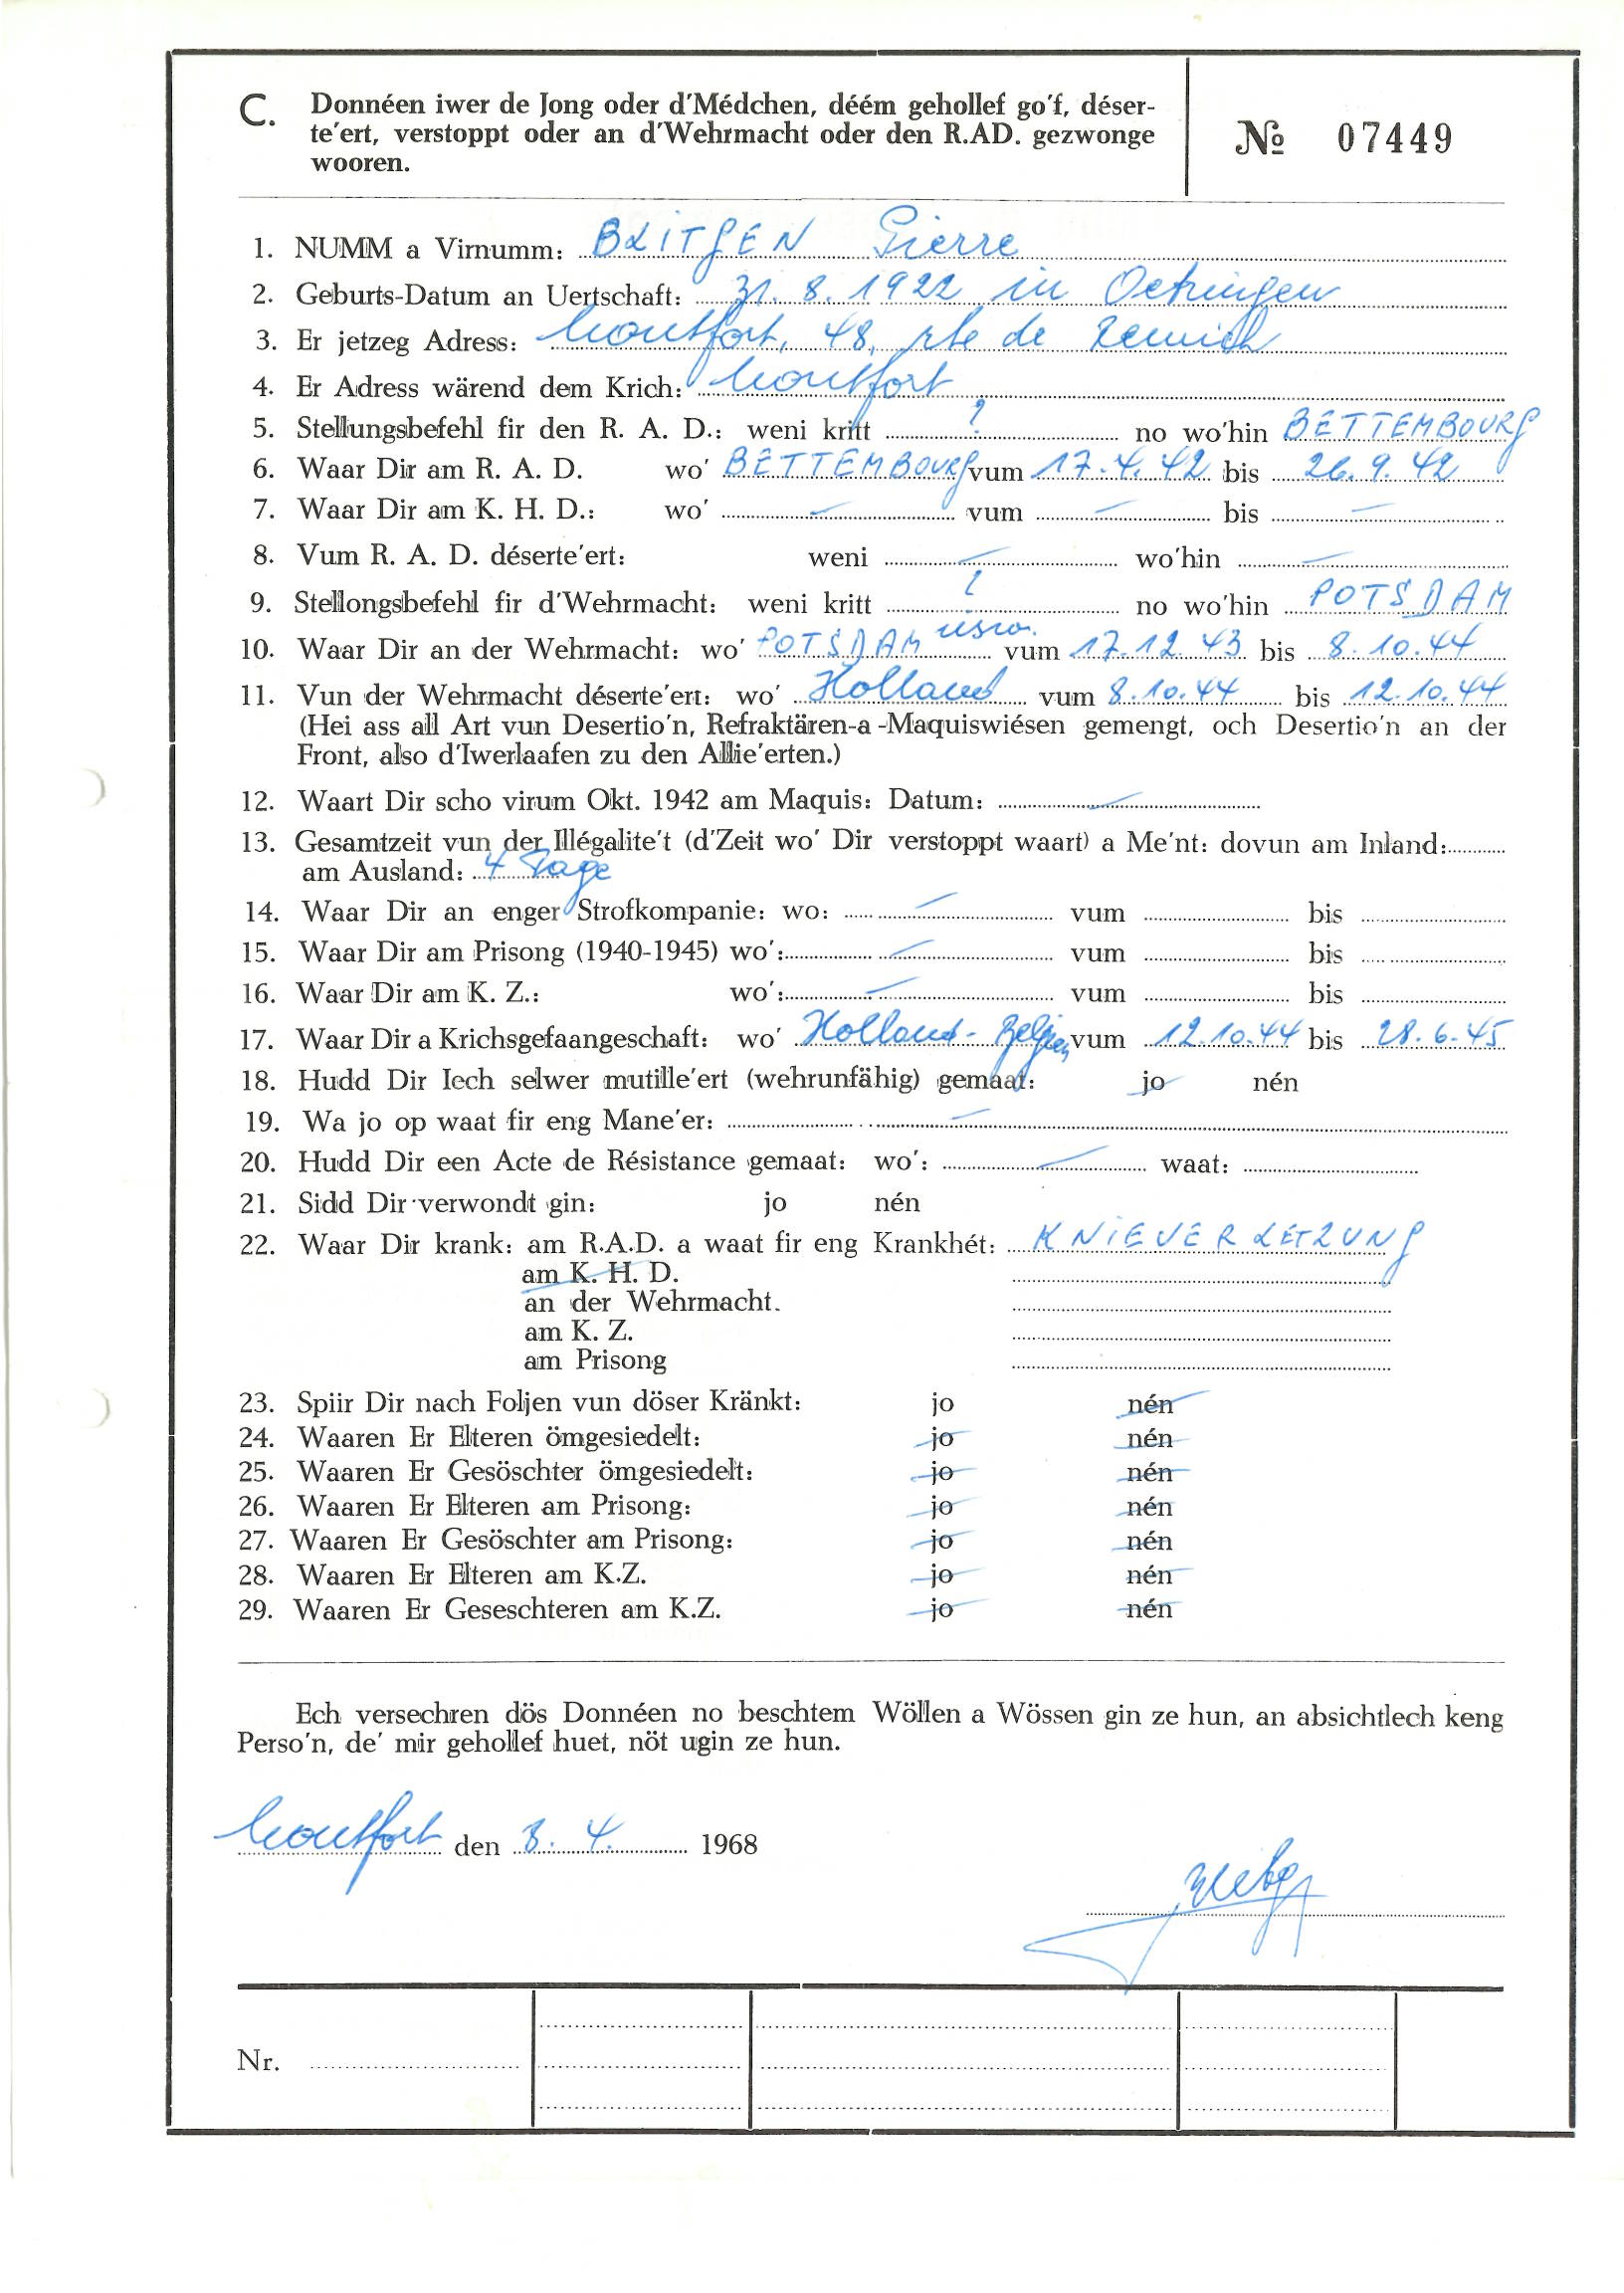 C. Donnéen iwer de Jong oder d'Médchen, déém gehollef go'f, déser-
te'ert, verstoppt oder an d'Wehrmacht oder den R.AD. gezwonge
wooren.
№ 07449
1. NUMM a Virnumm: BLITGEN Pierre
2. Geburts-Datum an Uertschaft: 31. 8. 1922 in Oetringen
3. Er jetzeg Adress: Montfort, 48, rte de Remich
4. Er Adress wärend dem Krich: Montfort
5. Stellungsbefehl fir den R. A. D.: weni kritt ? no wo'hin BETTEMBOURG
6. Waar Dir am R. A. D. wo' BETTEMBOURG vum 17.4.42 bis 26.9.42
7. Waar Dir am K. H. D.: wo' — vum — bis —
8. Vum R. A. D. déserte'ert: weni — wo'hin —
9. Stellongsbefehl fir d'Wehrmacht: weni kritt ? no wo'hin POTSDAM
10. Waar Dir an der Wehrmacht: wo' POTSDAM usw. vum 17.12.43 bis 8.10.44
11. Vun der Wehrmacht déserte'ert: wo' Holland vum 8.10.44 bis 12.10.44
(Hei ass all Art vun Desertio'n, Refraktären-a-Maquiswiésen gemengt, och Desertio'n an der
Front, also d'Iwerlaafen zu den Allie'erten.)
12. Waart Dir scho virum Okt. 1942 am Maquis: Datum: —
13. Gesamtzeit vun der Illégalite't (d'Zeit wo' Dir verstoppt waart) a Me'nt: dovun am Inland:
am Ausland: 4 Tage
14. Waar Dir an enger Strofkompanie: wo: — vum bis
15. Waar Dir am Prisong (1940-1945) wo': — vum bis
16. Waar Dir am K. Z.: wo': — vum bis
17. Waar Dir a Krichsgefaangeschaft: wo' Holland - Belgien vum 12.10.44 bis 28.6.45
18. Hudd Dir Iech selwer mutille'ert (wehrunfähig) gemaat: jo nén
19. Wa jo op waat fir eng Mane'er: —
20. Hudd Dir een Acte de Résistance gemaat: wo': — waat:
21. Sidd Dir verwondt gin: jo nén
22. Waar Dir krank: am R.A.D. a waat fir eng Krankhét: KNIEVERLETZUNG
am K. H. D.
an der Wehrmacht.
am K. Z.
am Prisong
23. Spiir Dir nach Foljen vun döser Kränkt: jo nén
24. Waaren Er Elteren ömgesiedelt: jo nén
25. Waaren Er Gesöschter ömgesiedelt: jo nén
26. Waaren Er Elteren am Prisong: jo nén
27. Waaren Er Gesöschter am Prisong: jo nén
28. Waaren Er Elteren am K.Z. jo nén
29. Waaren Er Geseschteren am K.Z. jo nén
Ech versechren dös Donnéen no beschtem Wöllen a Wössen gin ze hun, an absichtlech keng
Perso'n, de' mir gehollef huet, nöt ugin ze hun.
Montfort den 8. 4. 1968
Nr.